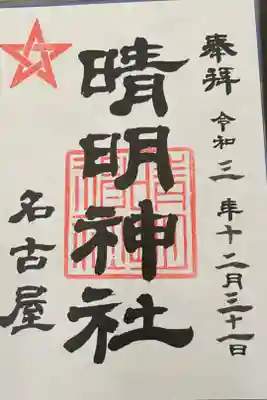 奉拝 令和三年十二月三十一日
晴明神社
名古屋